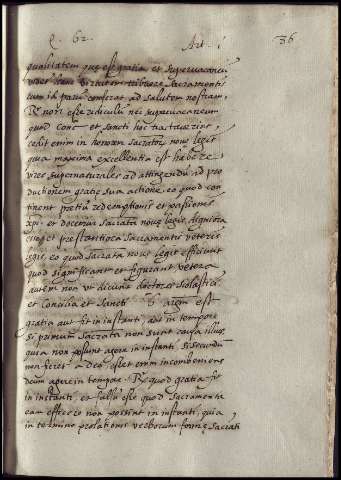 q. 62. Art. 1 86
qualitatem quae est gratia et supervacaneum
virtutem tribuere sacramentis
cum id parum conferat ad salutem nostram,
R. non esse ridiculum nec supervacaneum
quod Conc. et Sancti hoc
cedit enim in honorem Sacrator novae legis
quia maxima excellentia est habere
vires supernaturales ad attingendum ad pro
ductionem gratiae sua actione, eo quod con
tinent pretia redemptionis et passionis
xpi. et docemur Sacrata novae legis digniora
esse et prestantiora Sacramentis veteris
legis, eo quod Sacrata novae legis efficiunt
quod significant et figurant vetera
autem non ut dicunt doctores scolastici
et Concilia et Sancti 6 argm est
gratia aut fit in instanti, aut in tempore
si primum Sacrata non sunt causa illius
quia non possunt agere in instanti. Si secundum
non fieret a deo, esset enim inconveniens
deum agere in tempore. R. quod gratia fit
in instanti, et falsum esse quod Sacramenta
eam efficere non possint in instanti, quia
in termino prolationis verborum formae Sacrati